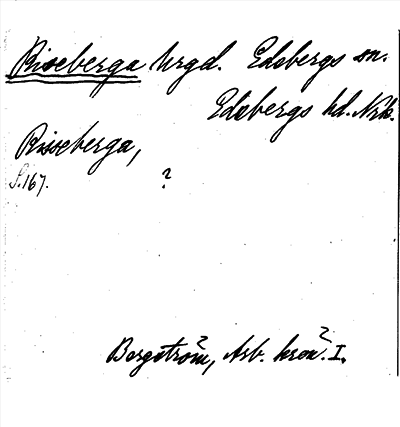 Riseberga hrgd. Edsbergs sn.
Edsbergs hd. Nrk.
Risseberga,
S. 167. ?
Bergström, Arb. kron. I.